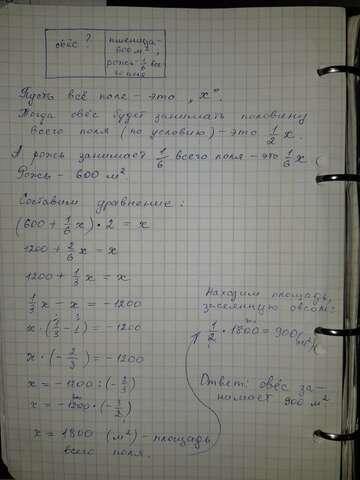 овёс ?
пшеница-
600 м²,
рожь-1/6 все
го поля
Пусть всё поле - это „x".
Тогда овёс будет занимать половину
всего поля (по условию) - это 1/2 x.
А рожь занимает 1/6 всего поля - это 1/6 x (
Рожь - 600 м².
Составим уравнение:
(600 + 1/6 x) · 2 = x
1200 + 2/6 x = x
1200 + 1/3 x = x
1/3 x - x = -1200
x · (1/3 - 1) = -1200
x · (-2/3) = -1200
x = -1200 : (-2/3)
x = -1200 · (-3/2)
x = 1800 (м²) - площадь
всего поля.
Находим площадь,
засеянную овсом:
1/2 · 1800 = 900 (м²)
Ответ: овёс за-
нимает 900 м²